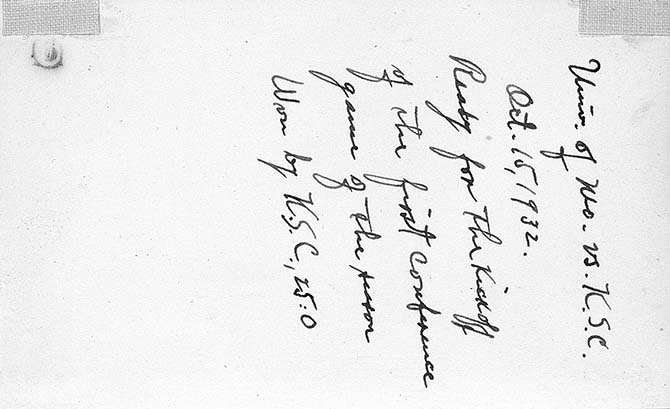 Univ. of Mo. vs. K.S.C.
Oct. 15, 1932.
Ready for the Kickoff
of the first conference
game of the season
Won by K.S.C., 25:0